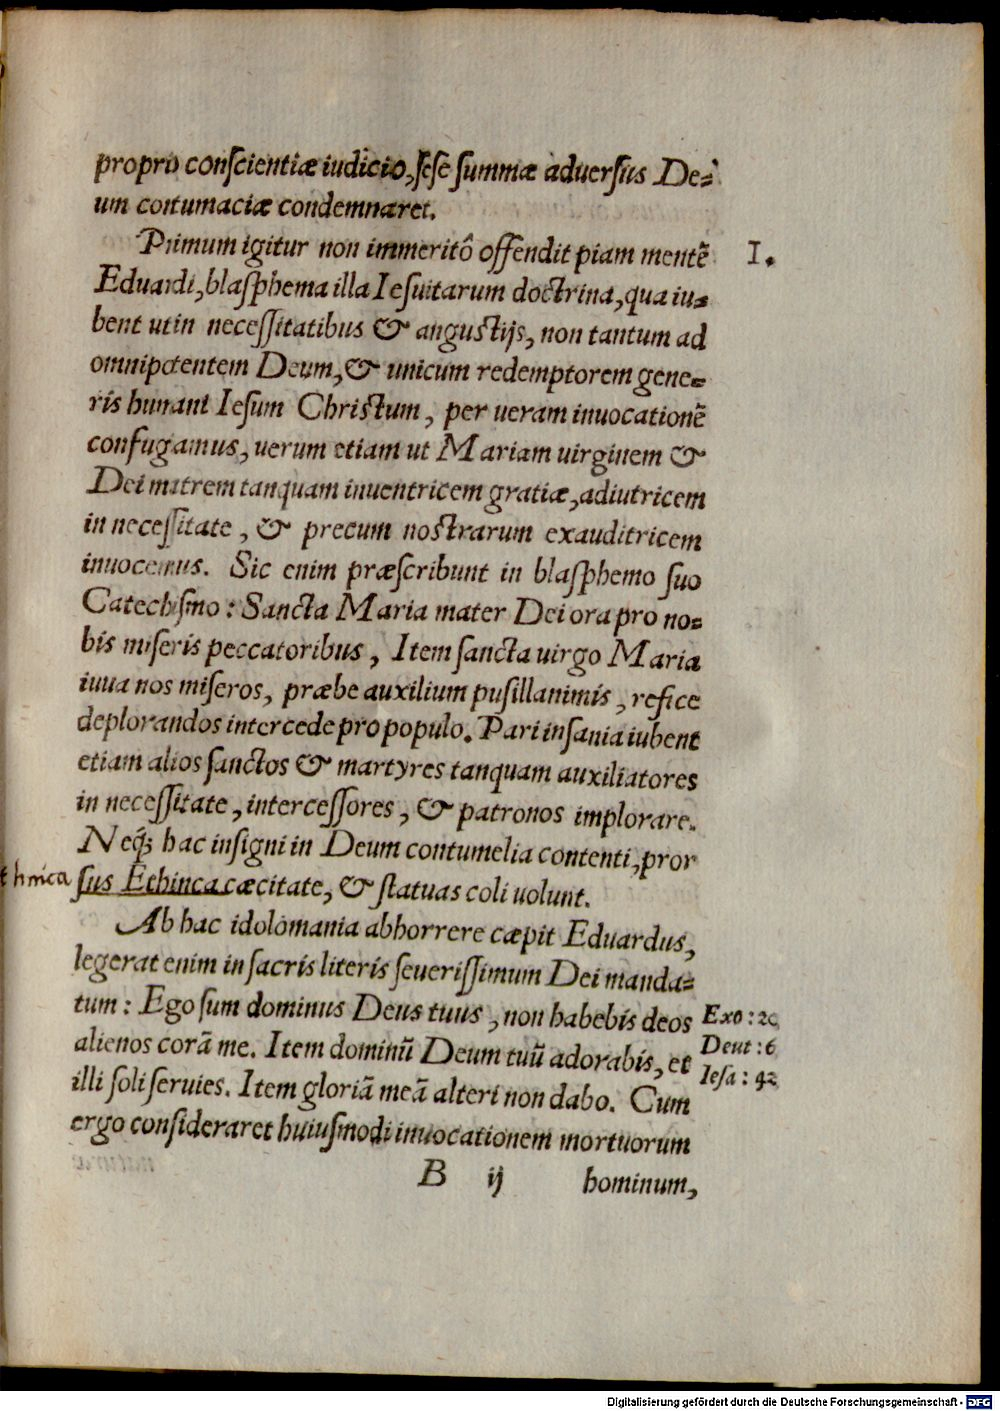 proprio conscientiæ iudicio, sese summæ adversus De-
um contumaciæ condemnaret.
Primum igitur non immeritò offendit piam mentē
I.
Eduardi, blasphema illa Iesuitarum doctrina, qua iu-
bent ut in necessitatibus & angustijs, non tantum ad
omnipotentem Deum, & unicum redemptorem gene-
ris humani Iesum Christum, per ueram inuocationē
confugamus, uerum etiam ut Mariam uirginem &
Dei matrem tanquam inuentricem gratiæ, adiutricem
in necessitate, & precum nostrarum exauditricem
inuocemus. Sic enim præscribunt in blasphemo suo
Catechismo: Sancta Maria mater Dei ora pro no-
bis miseris peccatoribus, Item sancta uirgo Maria
iuua nos miseros, præbe auxilium pusillanimis, refice
deplorandos intercede pro populo. Pari insania iubent
etiam alios sanctos & martyres tanquam auxiliatores
in necessitate, intercessores, & patronos implorare.
Neq; hac insigni in Deum contumelia contenti, pror
thnica
sus Ethinca cæcitate, & statuas coli uolunt.
Ab hac idolomania abhorrere cæpit Eduardus,
legerat enim in sacris literis seuerissimum Dei manda-
tum: Ego sum dominus Deus tuus, non habebis deos
Exo: 20
alienos corā me. Item dominū Deum tuū adorabis, et
Deut: 6
illi soli seruies. Item gloriā meā alteri non dabo. Cum
Iesa: 42
ergo consideraret huiusmodi inuocationem mortuorum
B ij
hominum,
Digitalisierung gefördert durch die Deutsche Forschungsgemeinschaft - DFG